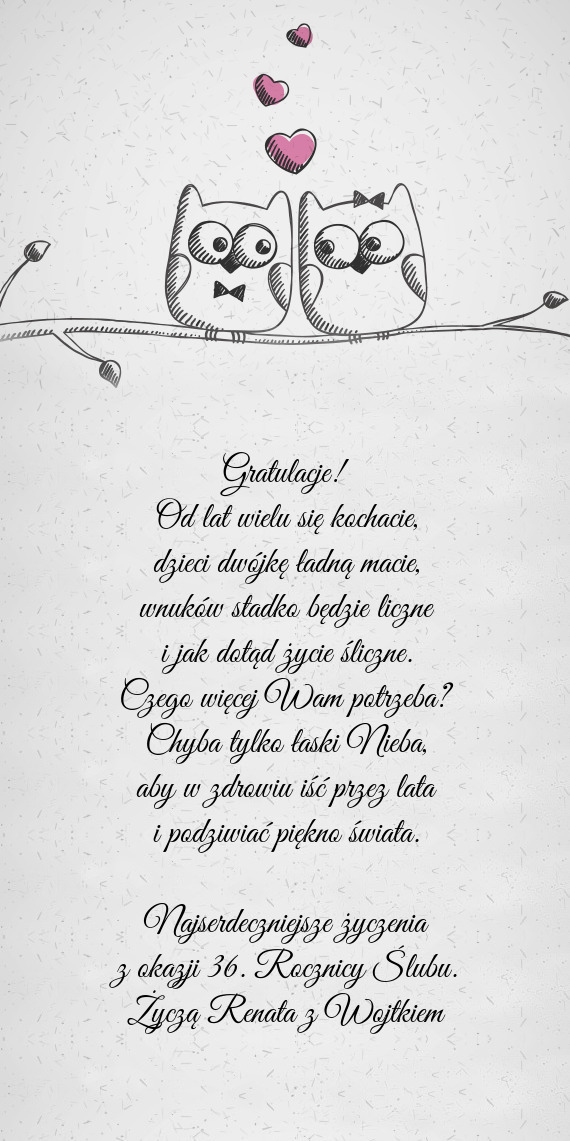 Gratulacje!
Od lat wielu się kochacie,
dzieci dwójkę ładną macie,
wnuków stadko będzie liczne
i jak dotąd życie śliczne.
Czego więcej Wam potrzeba?
Chyba tylko łaski Nieba,
aby w zdrowiu iść przez lata
i podziwiać piękno świata.
Najserdeczniejsze życzenia
z okazji 36. Rocznicy Ślubu.
Życzą Renata z Wojtkiem